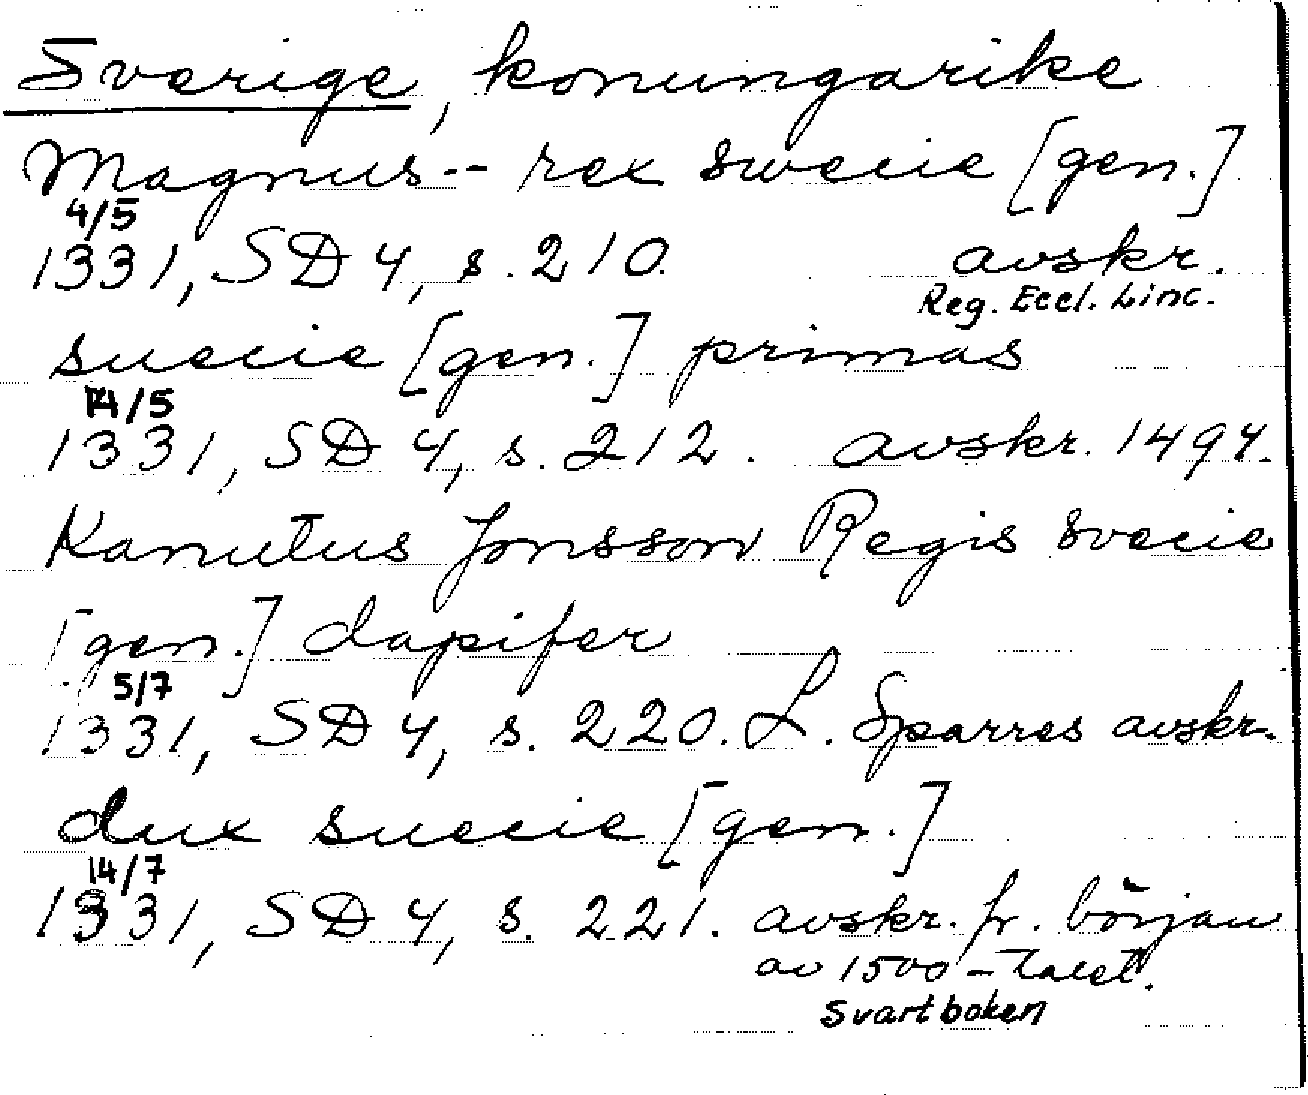 Sverige, konungarike
Magnus -- rex swecie [gen.]
4/5
1331, SD 4, s. 210. avskr.
Reg. Eccl. Linc.
suecie [gen.] primas
14/5
1331, SD 4, s. 212. avskr. 1494.
Kanutus Jonsson Regis svecie
[gen.] dapifer
5/7
1331, SD 4, s. 220. L. Sparres avskr.
dux suecie [gen.]
14/7
1331, SD 4, s. 221. avskr. fr. början
av 1500-talet.
Svartboken